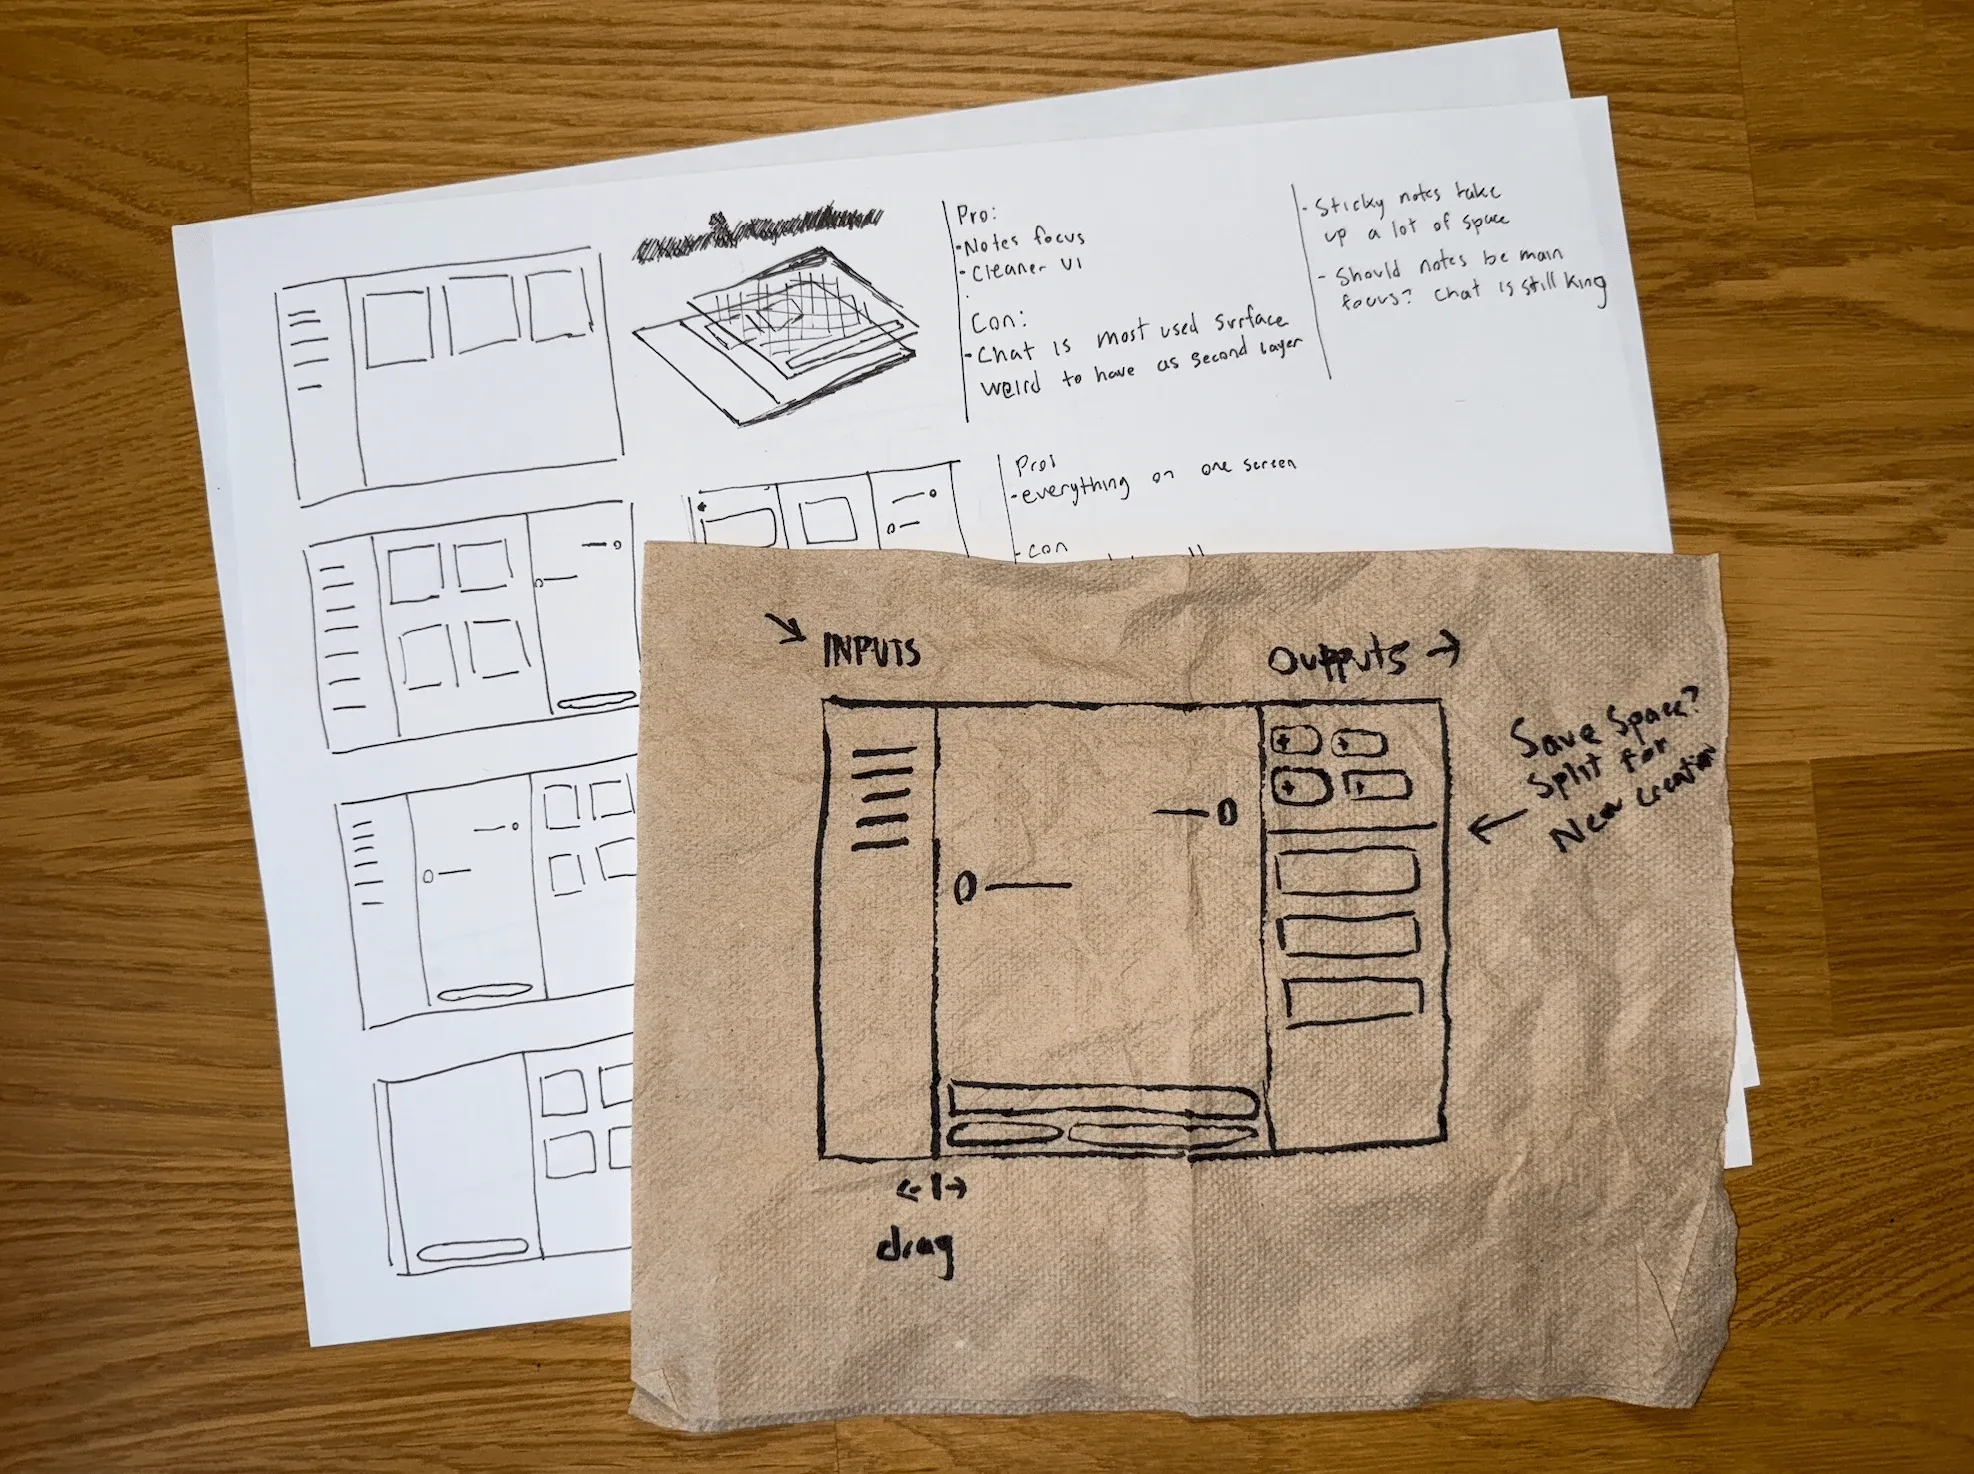 Pro:
- Notes focus
- Cleaner UI
Con:
- Chat is most used surface
weird to have as second layer
- Sticky notes take
up a lot of space
- Should notes be main
focus? Chat is still king
Pro:
- everything on one screen
- con
INPUTS
Outputs →
Save Space?
Split for
New creation
drag